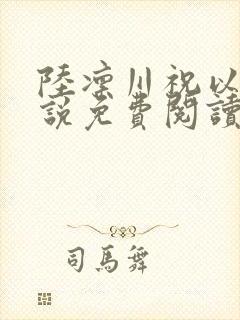 陸凛川祝以
說免費閱讀
司馬舞